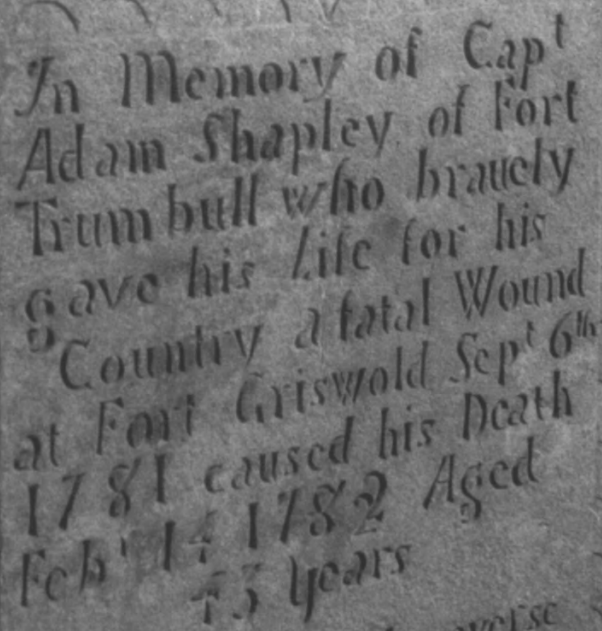 In Memory of Capt
Adam Shapley of Fort
Trumbull who bravely
gave his Life for his
Country a fatal Wound
at Fort Griswold Sept 6th
1781 caused his Death
Feby 14 1782 Aged
43 Years